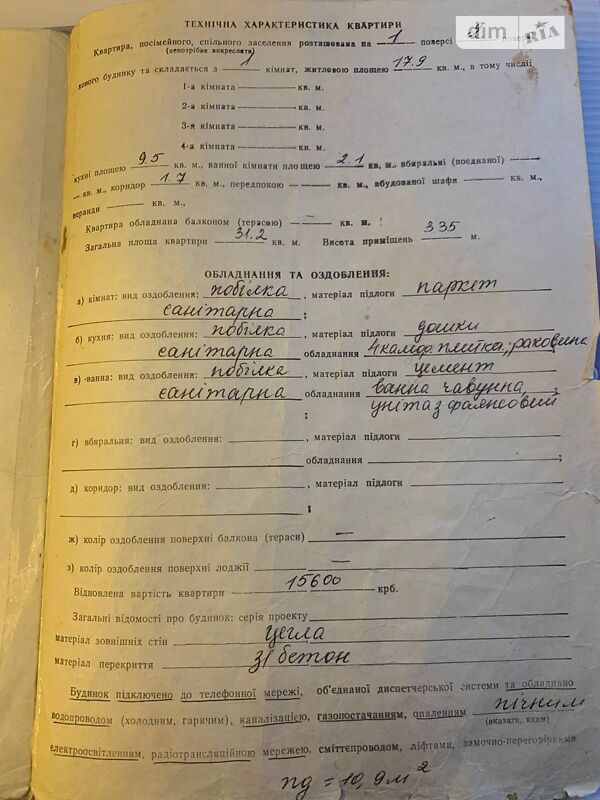 ТЕХНІЧНА ХАРАКТЕРИСТИКА КВАРТИРИ
dim RIA
Квартира, посімейного, спільного заселення розташована на 1 поверсі
(непотрібне викреслити)
хового будинку та складається з 1 кімнат, житловою площею 17.9 кв. м., в тому числі:
1-а кімната кв. м.
2-а кімната кв. м.
3-я кімната кв. м.
4-а кімната кв. м.
кухні площею 9.5 кв. м., ванної кімнати площею 2.1 кв. м., вбиральні (поєднаної)
кв. м., коридор 1.7 кв. м., передпокою — кв. м., вбудованої шафи — кв. м.,
веранди кв. м.,
Квартира обладнана балконом (терасою) — кв. м.
Загальна площа квартири 31.2 кв. м. Висота приміщень 335 м.
ОБЛАДНАННЯ ТА ОЗДОБЛЕННЯ:
а) кімнат: вид оздоблення: побілка, матеріал підлоги паркет
санітарна ;
б) кухня: вид оздоблення: побілка, матеріал підлоги дошки
санітарна обладнання 4 камфа. плитка, раковина
в) ванна: вид оздоблення: побілка, матеріал підлоги цемент
санітарна обладнання ванна чавунна,
; унітаз фаянсовий
г) вбиральня: вид оздоблення: , матеріал підлоги
обладнання ;
д) коридор: вид оздоблення: , матеріал підлоги
;
ж) колір оздоблення поверхні балкона (тераси) —
з) колір оздоблення поверхні лоджії —
Відновлена вартість квартири 15600 крб.
Загальні відомості про будинок: серія проекту
матеріал зовнішніх стін цегла
матеріал перекриття з/бетон
Будинок підключено до телефонної мережі, об'єднаної диспетчерської системи та обладнано
водопроводом (холодним, гарячим), каналізацією, газопостачанням, опаленням пічним
(вказати, яким)
електроосвітленням, радіотрансляційною мережею, сміттєпроводом, ліфтами, замочно-переговорними
пд = 10,9 м²